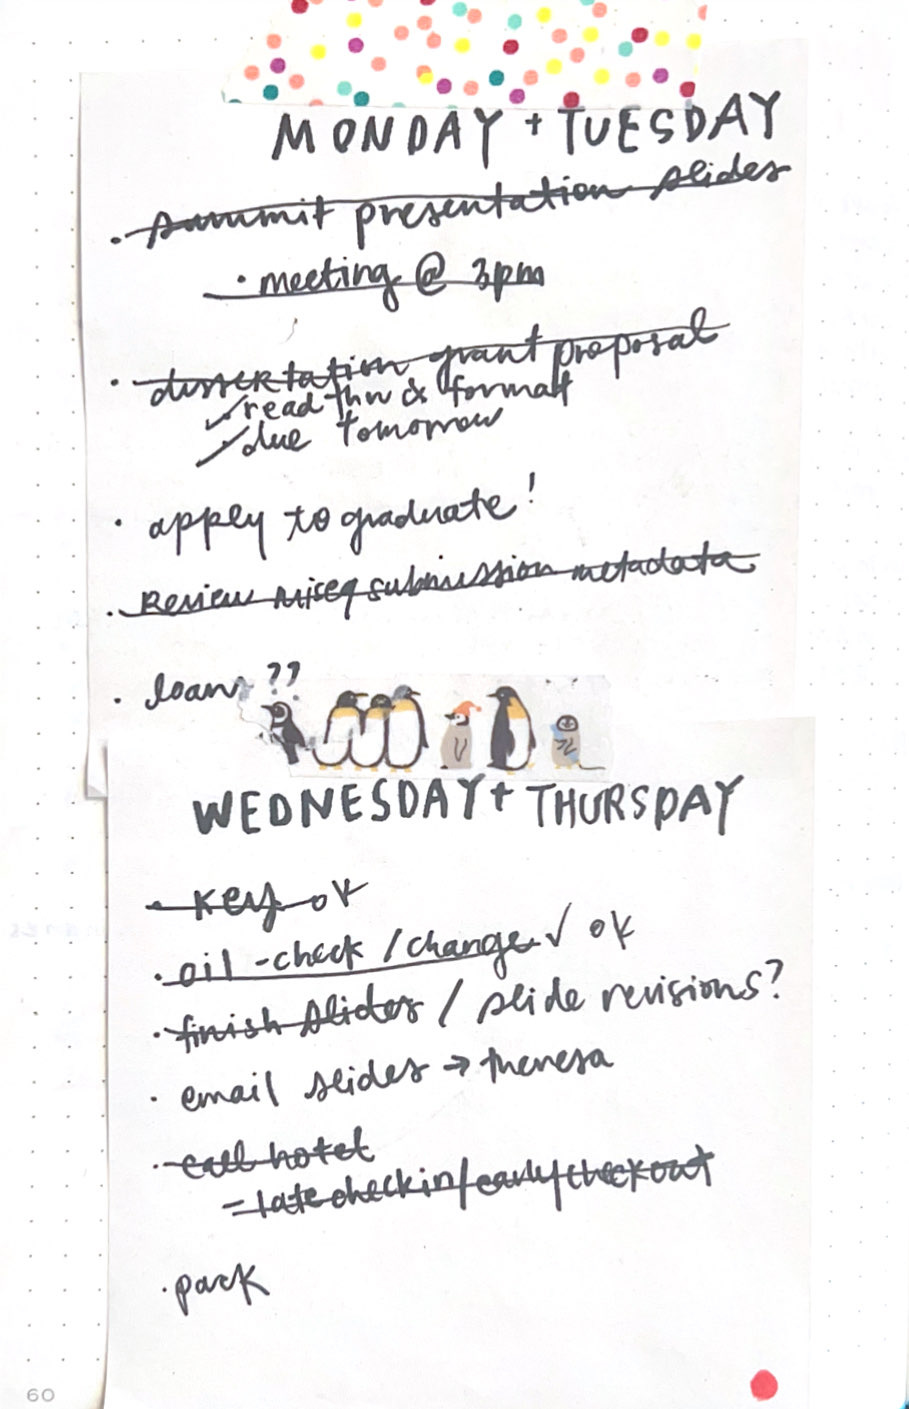 MONDAY + TUESDAY
· summit presentation slides
· meeting @ 3pm
· dissertation grant proposal
✓ read thru & format
✓ due tomorrow
· apply to graduate!
· Review miseq submission metadata
· loans ??
WEDNESDAY + THURSDAY
· key ok
· oil-check / change ✓ ok
· finish slides / slide revisions?
· email slides → theresa
· call hotel
- late check in / early check out
· pack
60